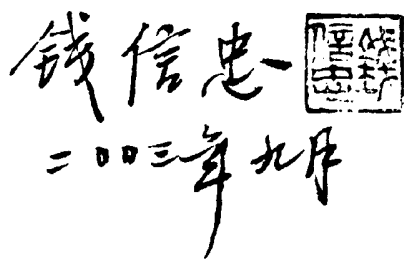 钱信忠
二〇〇三年九月